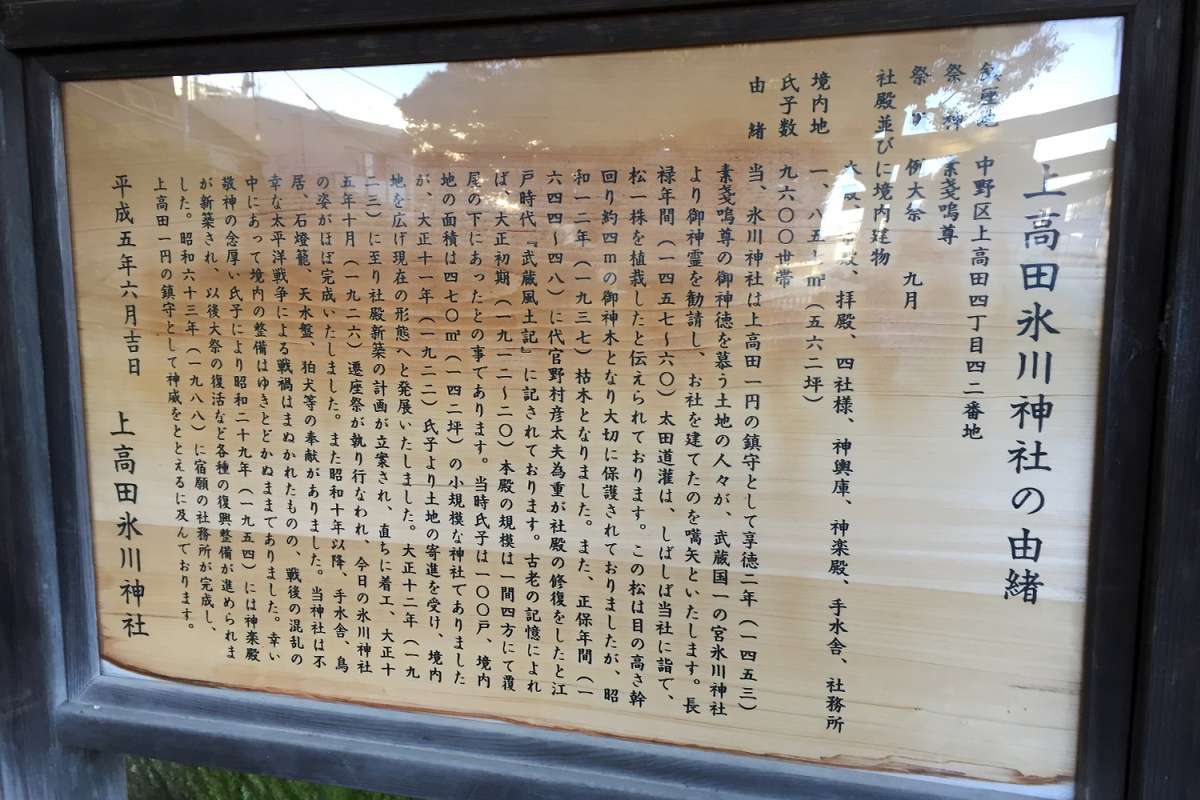 上高田氷川神社の由緒
鎮座地 中野区上高田四丁目四二番地
祭神 素戔嗚尊
祭り 例大祭 九月
社殿並びに境内建物
拝殿、四社様、神輿庫、神楽殿、手水舎、社務所
境内地 一、八五 ㎡(五六二坪)
氏子数 九六〇〇世帯
由緒 当、氷川神社は上高田一円の鎮守として享徳二年(一四五三)
素戔嗚尊の御神徳を慕う土地の人々が、武蔵国一の宮氷川神社
より御神霊を勧請し、お社を建てたのを嚆矢といたします。長
禄年間(一四五七〜六〇)太田道灌は、しばしば当社に詣て、
松一株を植栽したと伝えられております。この松は目の高さ幹
回り約四mの御神木となり大切に保護されておりましたが、昭
和一二年(一九三七)枯木となりました。また、正保年間(一
六四四〜四八)に代官野村彦太夫為重が社殿の修復をしたと江
戸時代『武蔵風土記』に記されております。古老の記憶によれ
ば、大正初期(一九一二〜二〇)本殿の規模は一間四方にて覆
屋の下にあったとの事であります。当時氏子は一〇〇戸、境内
地の面積は四七〇㎡(一四二坪)の小規模な神社でありました
が、大正十一年(一九二二)氏子より土地の寄進を受け、境内
地を広げ現在の形態へと発展いたしました。大正十二年(一九
二三)に至り社殿新築の計画が立案され、直ちに着工、大正十
五年十月(一九二六)遷座祭が執り行なわれ、今日の氷川神社
の姿がほぼ完成いたしました。また昭和十年以降、手水舎、鳥
居、石燈籠、天水盤、狛犬等の奉献がありました。当神社は不
幸な太平洋戦争による戦禍はまぬかれたものの、戦後の混乱の
中にあって境内の整備はゆきとどかぬままでありました。幸い
敬神の念厚い氏子により昭和二十九年(一九五四)には神楽殿
が新築され、以後大祭の復活など各種の復興整備が進められま
した。昭和六十三年(一九八八)に宿願の社務所が完成し、
上高田一円の鎮守として神威をととえるに及んでおります。
平成五年六月吉日 上高田氷川神社